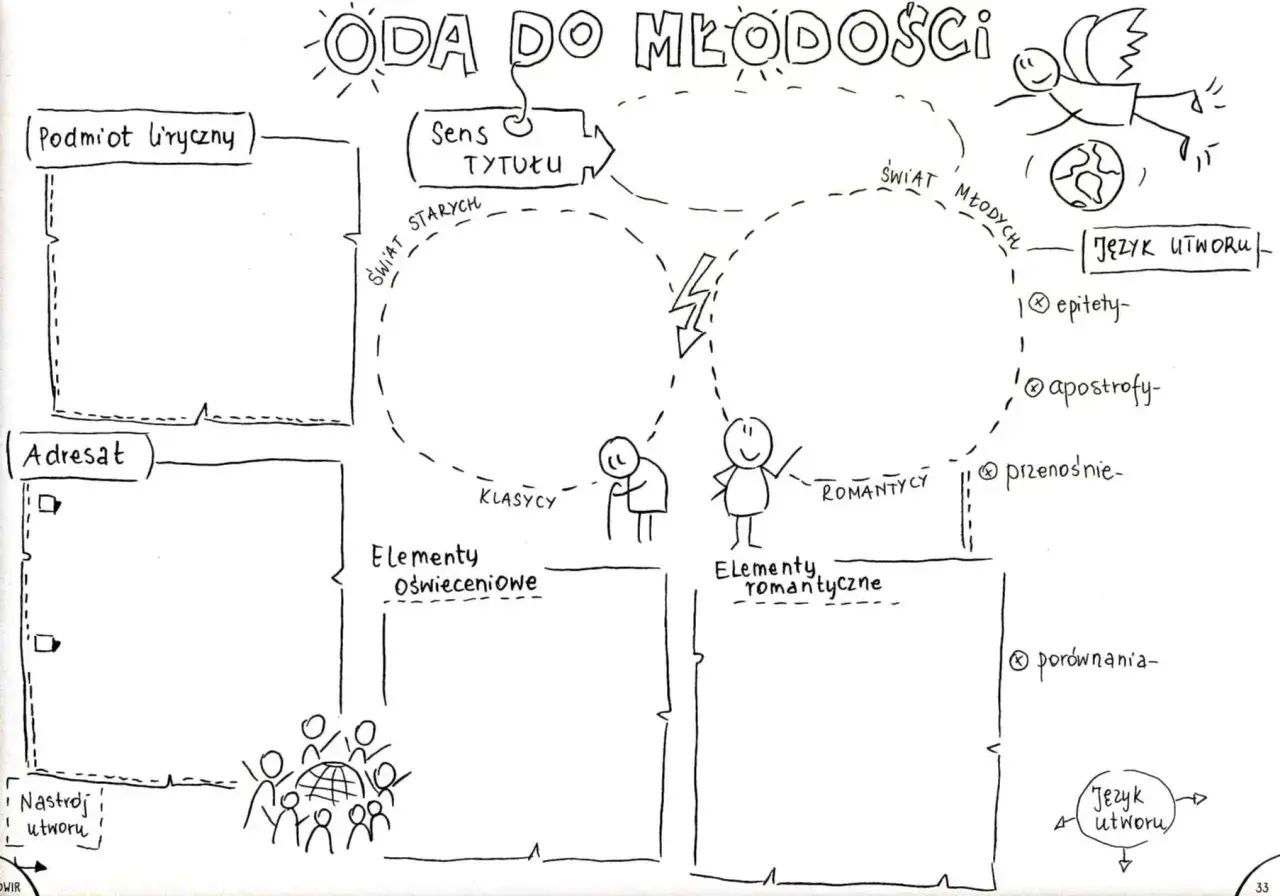 ODA DO MŁODOŚCi
Podmiot liryczny
Sens
TYTUŁU
ŚWiAT STARYCH
ŚWiAT MŁODYCH
JĘZYK UTWORU
epitety-
apostrofy-
przenośnie-
porównania-
Adresat
KLASYCY
ROMANTYCY
Elementy
oświeceniowe
Elementy
romantyczne
Nastrój
utworu
Język
utworu
OWIR
33